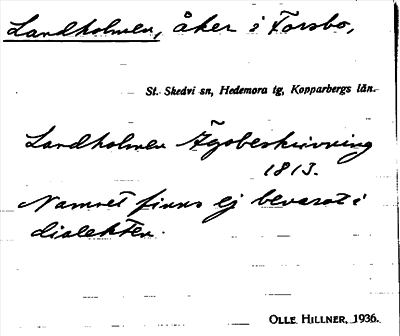 Landholmen, åker i Forsbo,
St. Skedvi sn, Hedemora tg, Kopparbergs län.
Landholmen Ägobeskrivning
1813.
Namnet finns ej bevarat i
dialekten.
OLLE HILLNER, 1936.